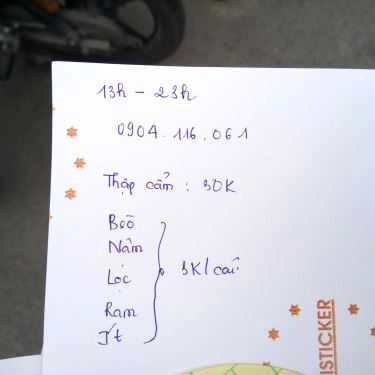 13h - 23h
0904.116.061
Thập cẩm : 30K
Beò
Nậm
Lọc
Ram
Ít
3K/cái
ISTICKER